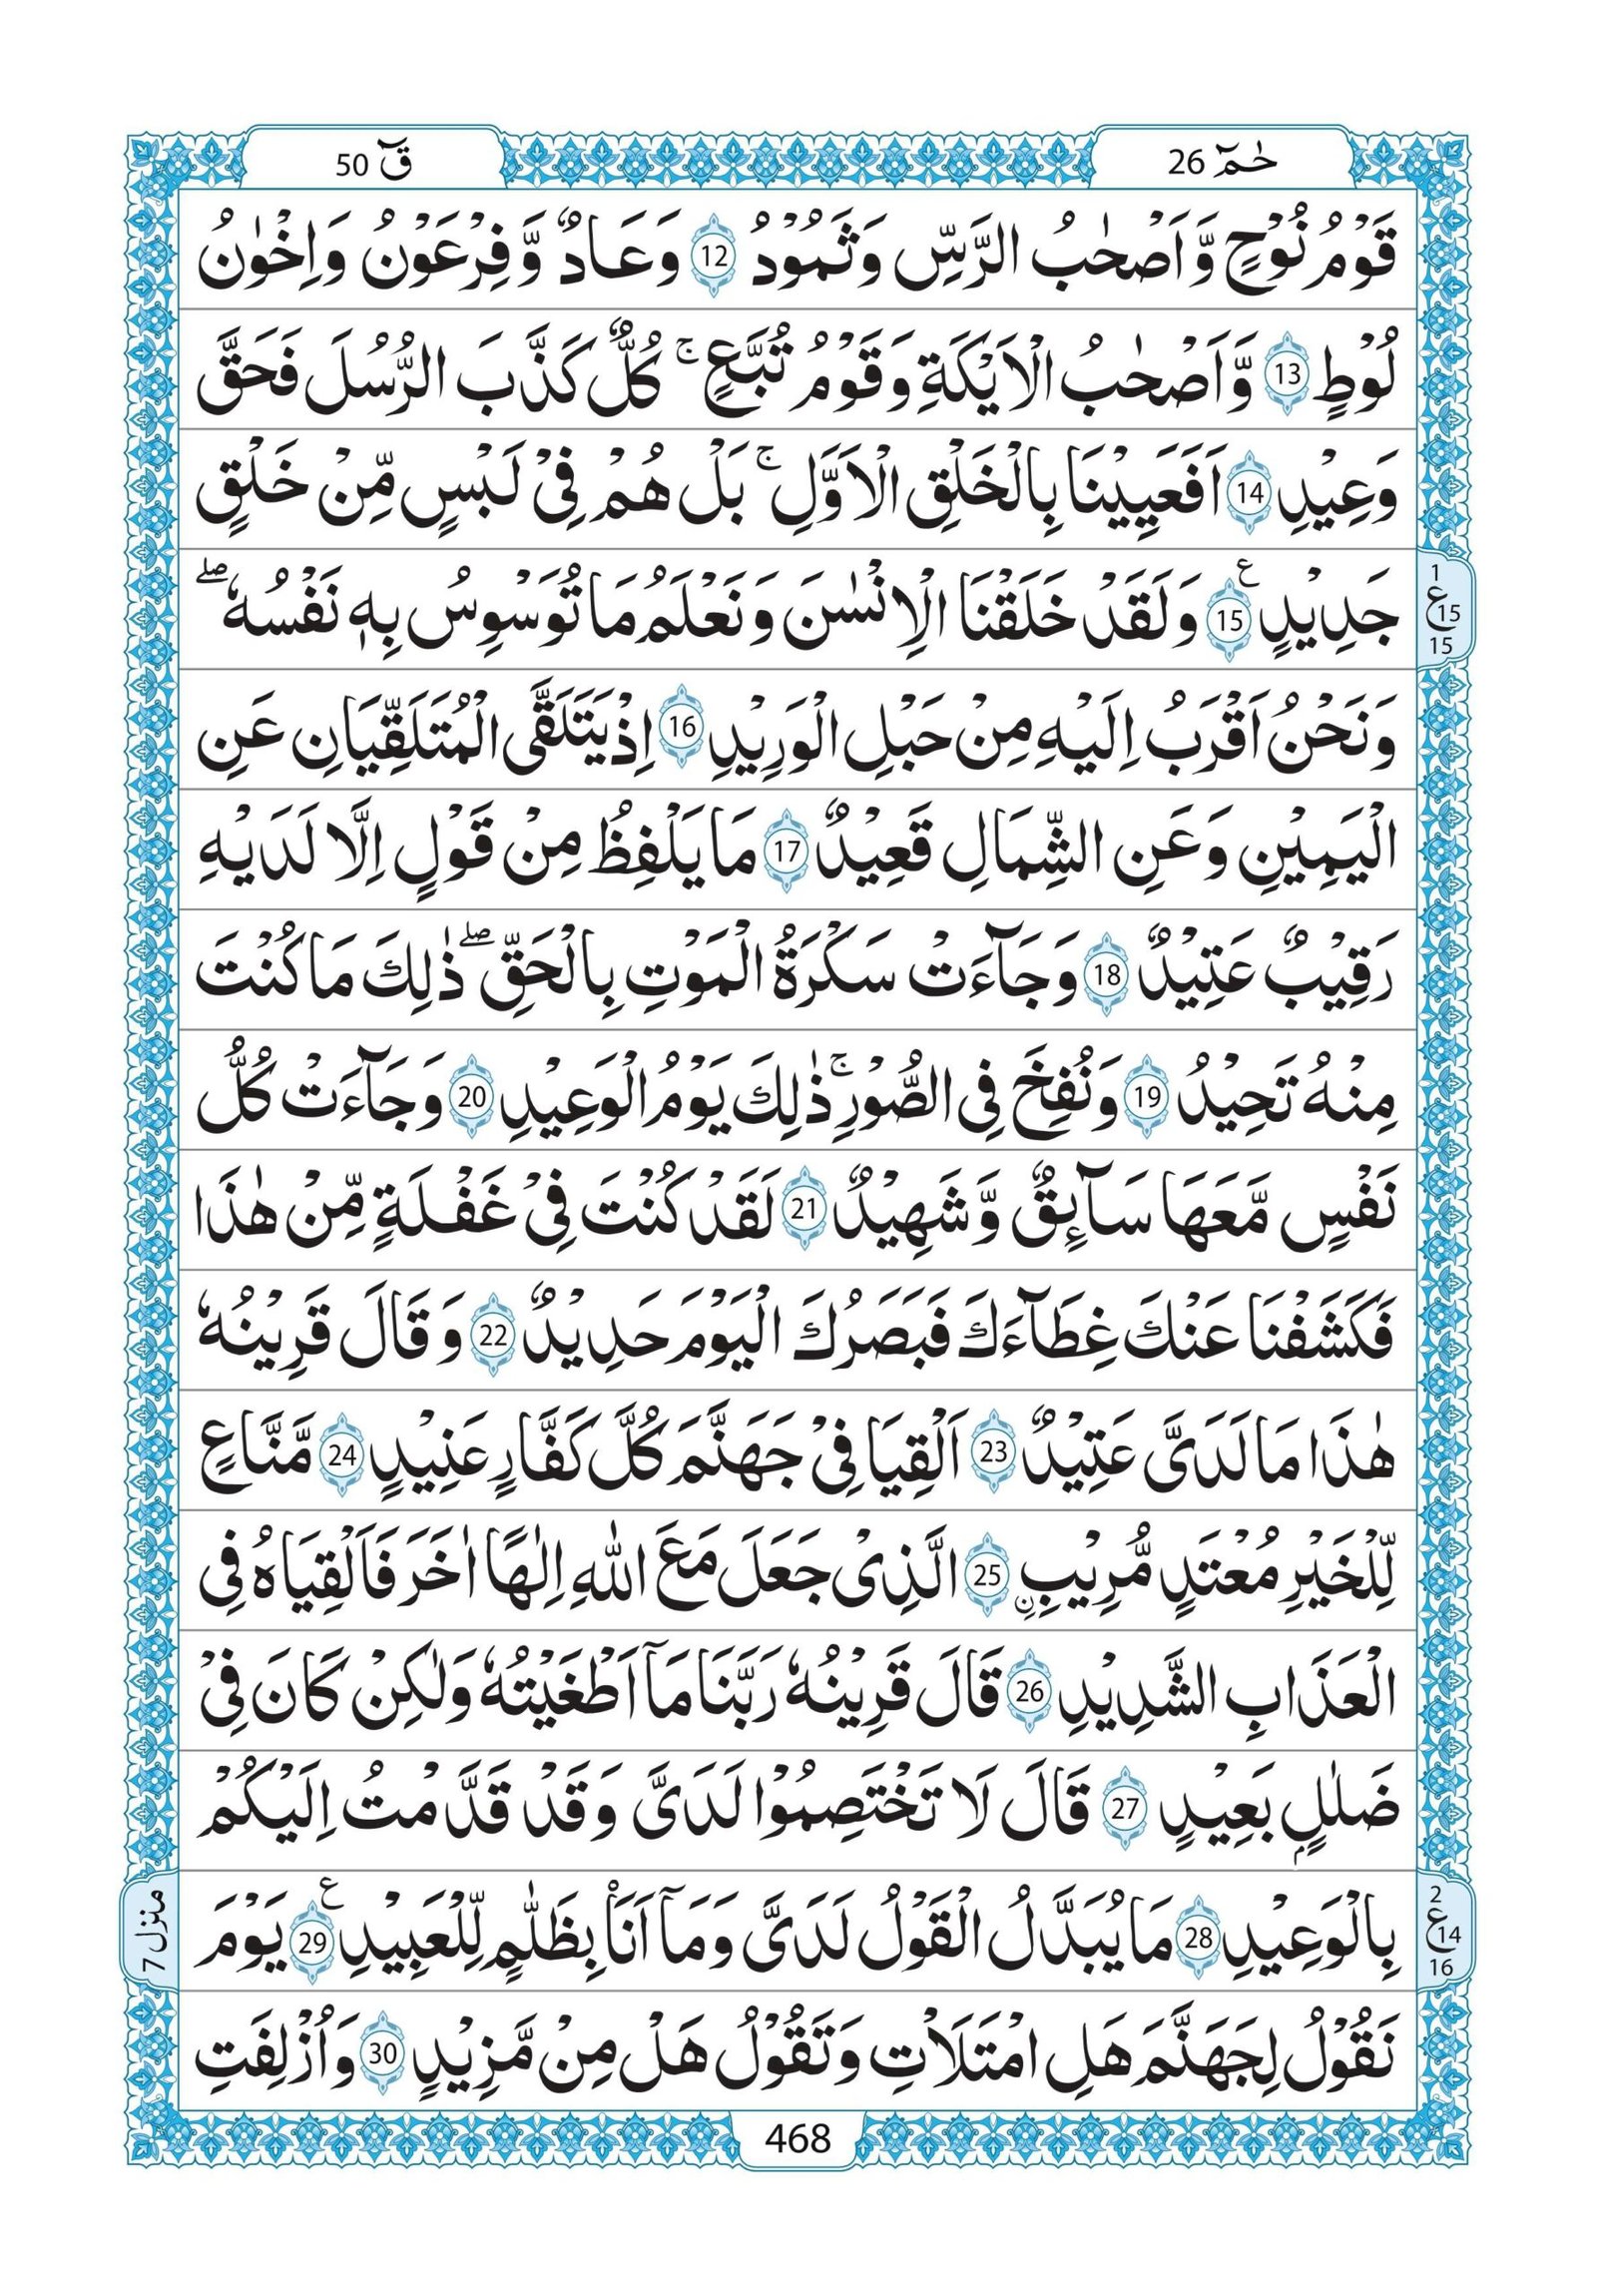 قٓ 50
حٰمٓ 26
قَوْمُ نُوْحٍ وَّاَصْحٰبُ الرَّسِّ وَثَمُوْدُ 12 وَعَادٌ وَّفِرْعَوْنُ وَاِخْوٰنُ
لُوْطٍ 13 وَّاَصْحٰبُ الْاَيْكَةِ وَقَوْمُ تُبَّعٍ ۚ كُلٌّ كَذَّبَ الرُّسُلَ فَحَقَّ
وَعِيْدِ 14 اَفَعَيِيْنَا بِالْخَلْقِ الْاَوَّلِ ۚ بَلْ هُمْ فِيْ لَبْسٍ مِّنْ خَلْقٍ
جَدِيْدٍ 15 ع وَلَقَدْ خَلَقْنَا الْاِنْسٰنَ وَنَعْلَمُ مَا تُوَسْوِسُ بِهٖ نَفْسُهٗ ۖ
1
ع 15
15
وَنَحْنُ اَقْرَبُ اِلَيْهِ مِنْ حَبْلِ الْوَرِيْدِ 16 اِذْ يَتَلَقَّى الْمُتَلَقِّيَانِ عَنِ
الْيَمِيْنِ وَعَنِ الشِّمَالِ قَعِيْدٌ 17 مَا يَلْفِظُ مِنْ قَوْلٍ اِلَّا لَدَيْهِ
رَقِيْبٌ عَتِيْدٌ 18 وَجَآءَتْ سَكْرَةُ الْمَوْتِ بِالْحَقِّ ۖ ذٰلِكَ مَا كُنْتَ
مِنْهُ تَحِيْدُ 19 وَنُفِخَ فِى الصُّوْرِ ۚ ذٰلِكَ يَوْمُ الْوَعِيْدِ 20 وَجَآءَتْ كُلُّ
نَفْسٍ مَّعَهَا سَآئِقٌ وَّشَهِيْدٌ 21 لَقَدْ كُنْتَ فِيْ غَفْلَةٍ مِّنْ هٰذَا
فَكَشَفْنَا عَنْكَ غِطَآءَكَ فَبَصَرُكَ الْيَوْمَ حَدِيْدٌ 22 وَقَالَ قَرِيْنُهٗ
هٰذَا مَا لَدَىَّ عَتِيْدٌ 23 اَلْقِيَا فِيْ جَهَنَّمَ كُلَّ كَفَّارٍ عَنِيْدٍ 24 مَّنَّاعٍ
لِّلْخَيْرِ مُعْتَدٍ مُّرِيْبِ ِۨ 25 الَّذِىْ جَعَلَ مَعَ اللّٰهِ اِلٰهًا اٰخَرَ فَاَلْقِيَاهُ فِى
الْعَذَابِ الشَّدِيْدِ 26 قَالَ قَرِيْنُهٗ رَبَّنَا مَآ اَطْغَيْتُهٗ وَلٰكِنْ كَانَ فِيْ
ضَلٰلٍۭ بَعِيْدٍ 27 قَالَ لَا تَخْتَصِمُوْا لَدَىَّ وَقَدْ قَدَّمْتُ اِلَيْكُمْ
بِالْوَعِيْدِ 28 مَا يُبَدَّلُ الْقَوْلُ لَدَىَّ وَمَآ اَنَا۠ بِظَلّٰمٍ لِّلْعَبِيْدِ 29 ع يَوْمَ
2
ع 14
16
منزل 7
نَقُوْلُ لِجَهَنَّمَ هَلِ امْتَلَاْتِ وَتَقُوْلُ هَلْ مِنْ مَّزِيْدٍ 30 وَاُزْلِفَتِ
468